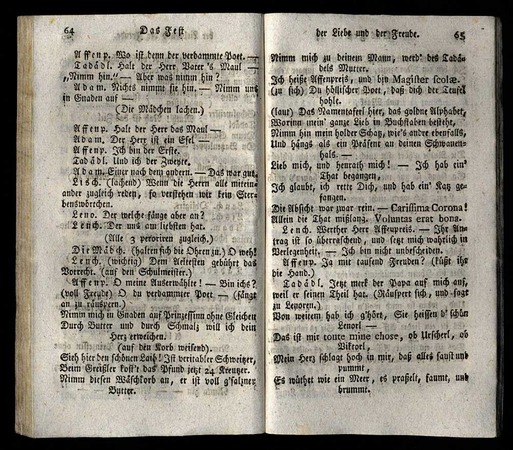 64 Das Fest
Affenp. Wo ist denn der verdammte Poet. —
Tadädl. Halt der Herr Vater's Maul —
„Nimm hin.“ — Aber was nimm hin?
Adam. Nichts nimmt sie hin. — Nimm uns
in Gnaden auf —
(Die Mädchen lachen.)
Affenp. Halt der Herr das Maul —
Adam. Der Herr ist ein Esel —
Affenp. Ich bin der Erste.
Tadädl. Und ich der Zweyte.
Adam. Einer nach dem andern. — Das war gut.
Lisch. (lachend) Wenn die Herrn alle mitein-
ander zugleich reden, so verstehen wir kein Ster-
benswörtchen.
Leno. Der welche fänge aber an?
Lench. Der uns am liebsten hat.
(Alle 3 peroriren zugleich.)
Die Mädch. (halten sich die Ohren zu.) O weh!
Lench. (wichtig) Dem Aeltesten gebührt das
Vorrecht. (auf den Schulmeister.)
Affenp. O meine Auserwählte! — Bin ichs?
(voll Freude) O du verdammter Poet — (fängt
an zu räuspern.)
Nimm mich in Gnaden auf Prinzessinn ohne Gleichen
Durch Butter und durch Schmalz will ich dein
Herz erweichen.
(auf den Korb weisend).
Sieh hier den schönen Laib! Ist veritabler Schweitzer,
Beym Greißler kost't das Pfund jetzt 24 Kreutzer.
Nimm diesen Wäschkorb an, er ist voll g'salzner
Butter.
der Liebe und der Freude. 65
Nimm mich zu deinem Mann, werd' des Tadä-
dels Mutter.
Ich heiße Affenpreis, und bin Magister scolæ.
(zu sich) Du höllischer Poet, daß dich der Teufel
hohle.
(laut) Das Namentaferl hier, das goldne Alphabet,
Worinn mein' ganze Lieb in Buchstaben besteht,
Nimm hin mein holder Schatz, wie's andre ebenfalls,
Und hängs als ein Präsent an deinen Schwanen-
hals. —
Lieb mich, und heurath mich! — Ich hab ein'
That begangen,
Ich glaubt, ich rette Dich, und hab ein' Katz ge-
fangen.
Die Absicht war zwar rein. — Carissima Corona!
Allein die That mißlang. Voluntas erat bona.
Lench. Werther Herr Affenpreis. — Ihr An-
trag ist so überraschend, und setzt mich wahrlich in
Verlegenheit. — Ich bin nicht unbescheiden.
Affenp. Ja mit tausend Freuden? (küßt ihr
die Hand.)
Tadädl. Jetzt merk der Papa auf mich auf,
weil er seinen Theil hat. (Räuspert sich, und sagt
zu Lenorln.)
Von weitem hab ich g'hört, Sie heissen d' schön
Lenorl —
Das ist mir toute mine chose, ob Urscherl, ob
Viktorl,
Mein Herz schlagt hoch in mir, daß alles saust und
pummt,
Es wüthet wie ein Meer, es praßelt, saumt, und
brummt.